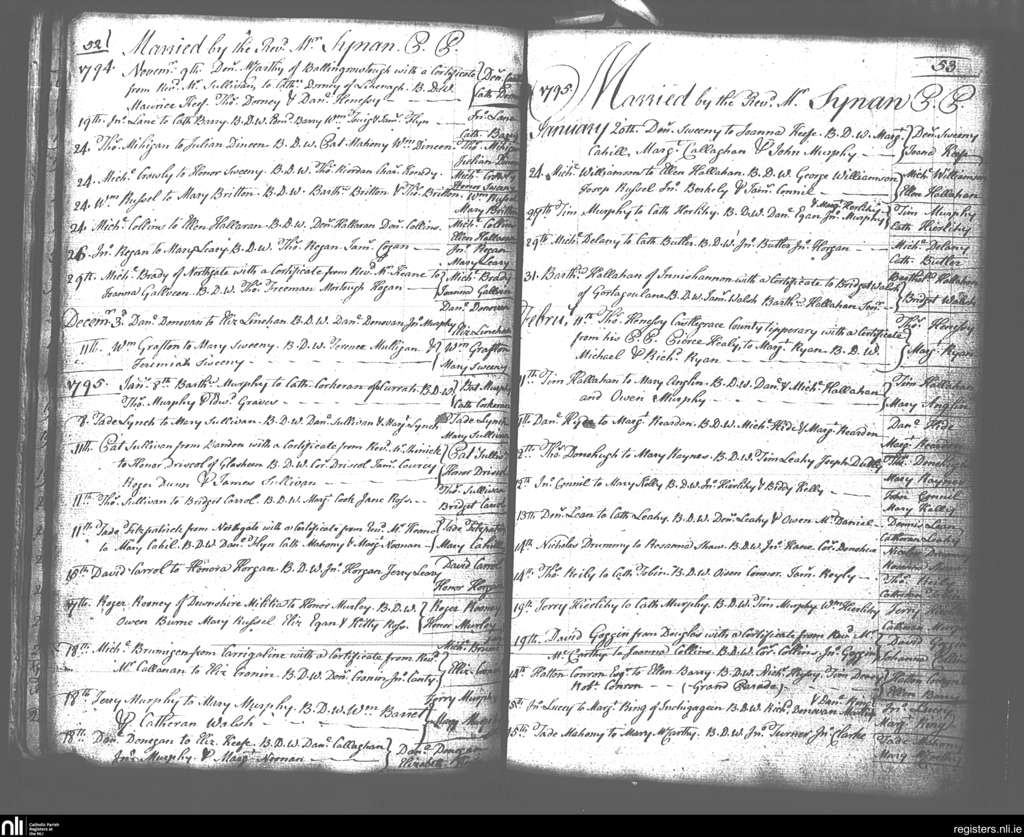 52
Married by the Revd. Mr. Synan. P. P.
1794. Novemr. 9th. Dens. McCarthy of Ballingmortough with a Certificate
from Revd. Mr. Sullivan, to Cathn. Dorney of B.D.W.
Maurice Keef. Thos. Dorney & Danl. Henessy
19th. Jno. Lane to Cath Barry. B.D.W. Barry Wm. Twig & Jams. Flyn
Jno. Lane
Cath. Barry
24. Thos. Mihigan to Julian Dineen B.D.W. Pat Mahony Wm. Dineen
Thos. Mihigan
Julian Dineen
24. Michl. Crowly to Honor Sweeny. B.D.W. Thos. Riordan
Honor Sweeny
24. Wm. Russel to Mary Britton. B.D.W. Barthw. Britton & Thos. Britton
Wm. Russel
Mary Britton
24 Michl. Collins to Ellen Hallaran. B.D.W. Denl. Hallaran Danl. Collins.
Michl. Collins
Ellen Hallaran
26. Jno. Regan to Mary Leary. B.D.W. Thos. Regan Jams. Cogan
Jno. Regan
Mary Leary
29th. Michl. Brady of Northgate with a Certificate from Revd. Mr. Keane to
Joanna Galliveen. B.D.W. Thos. Freeman Mortough Hogan
Michl. Brady
Joanna Galliveen
Decemr. 3d. Danl. Donovan to Eliz Linehan B.D.W. Danl. Donovan Jno. Murphy
Danl. Donovan
Eliz Linehan
11th. Wm. Grafton to Mary Sweeny. B.D.W. Terence Mulligan &
Jeremiah Sweeny
Wm. Grafton
Mary Sweeny
1795. Janr. 8th. Barthw. Murphy to Cath. Corkeran of Currah. B.D.W.
Thos. Murphy & Edwd. Graves
Bat Murphy
Cath Corkeran
8. Tade Lynch to Mary Sullivan. B.D.W. Danl. Sullivan & Mary Lynch
Tade Lynch
Mary Sullivan
11th. Pat Sullivan from Bandon with a Certificate from Revd. Mr.
to Honor Driscol of Glasheen B.D.W. Cor. Driscol Jams.
Roger Dunn & James Sullivan
Pat Sullivan
Honor Driscol
11th. Thos. Sullivan to Bridget Carrol. B.D.W. Margt. Cook Jane Ross.
Thos. Sullivan
Bridget Carrol
11th. Tade Fitzpatrick from Northgate with a Certificate from Revd. Mr. Keane
to Mary Cahil. B.D.W. Danl. Flyn Cath Mahony & Margt. Noonan
Tade Fitzpatrick
Mary Cahill
15th. David Carrol to Honora Horgan B.D.W. Jno. Horgan Jerry Leary
David Carrol
Honor Horgan
17th. Roger Rooney of Devonshire Militia to Honor Murley. B.D.W.
Owen Burne Mary Russel Eliz Egan & Kitty Ross.
Roger Rooney
Honor Murley
18th. Michl. from Carrigaline with a Certificate from Revd.
Mr. Callanan to Eliz Cronin. B.D.W. Denl. Cronin Jno. Canty.
Eliz. Cronin
18th. Jerry Murphy to Mary Murphy. B.D.W. Wm. Barret
& Catheran Walsh
Jerry Murphy
Mary Murphy
18th. Danl. Donegan to Eliz. Keefe. B.D.W. Danl. Callaghan
Jno. Murphy & Margt. Noonan
Danl. Donegan
Elizabeth
53.
1795. Married by the Revd. Mr. Synan P. P.
January 20th. Denl. Sweeny to Joanna Keefe. B.D.W. Margt.
Cahill, Margt. Callaghan & John Murphy
Denl. Sweeny
Joana Keefe
24. Michl. Williamson to Ellen Hallahan. B.D.W. George Williamson
Josep Russel Jno. Berkely & Jams. Connil
Michl. Williamson
Ellen Hallahan
25th Tim Murphy to Cath Herlihy. B.D.W. Danl. Egan Jno. Murphy & Margt. Herlihy
Tim Murphy
Cath Hierlihy
29th Michl. Delany to Cath Butler. B.D.W. Jno. Butler Jno. Horgan
Michl. Delany
Cath. Butler
31. Barthw. Hallahan of Innishannon with a Certificate to Bridget Walsh
of Gortagoulane B.D.W. Jams. Walsh Barthw. Hallahane Senr.
Barthw. Hallahan
Bridget Walsh
Febru. 11th. Thos. Henessy Castlegrace County Tipperary with a Certificate
from his P.P. Pierce Healy, to Margt. Ryan. B.D.W.
Michael & Richd. Ryan
Thos. Henessy
Margt. Ryan
11th Tim Hallahan to Mary Anglin. B.D.W. Danl. & Michl. Hallahan
and Owen Murphy
Tim Hallahan
Mary Anglin
Danl. Hyde to Margt. Reardon. B.D.W. Michl. Hide & Margt. Reardon
Danl. Hide
Margt. Reardon
Thos. Donohugh to Mary Haynes. B.D.W. Tim Leahy Joseph
Thos. Donohugh
Mary Haynes
12th. Jno. Connil to Mary Kelly B.D.W. Jno. Hierlihy & Biddy Kelly
John Connil
Mary Kelly
13th Denl. Lean to Cath Leahy. B.D.W. Denl. Leahy & Owen Mc.Daniel
Dennis Lean
Catheran Leahy
14th. Nicholas Drummy to Rosanna Shaw. B.D.W. Jno. Kane. Cor. Donohue
Nicholas Drummy
14th. Thos. Reily to Cath Tobin. B.D.W. Owen Connor. Jam. Royly
Thos. Reily
19th Jerry Hierlihy to Cath Murphy. B.D.W. Tim Murphy Wm. Hierlihy
Jerry
19th. David Goggin from Douglas with a Certificate from Revd. Mr.
Mc.Carthy to Joanna Collins. B.D.W. Cor. Collins. Jno. Goggin
David
Johanna Collins
14th Hatton Conron Esqr. to Ellen Barry. B.D.W. Tim Drury
Robt. Conron (Grand Parade)
Hatton Conron
Ellen Barry
15th Jno. Lucey to Margt. Ring of Inchigagein B.D.W. Richd. Donovan
Jno. Lucey
Margt. Ring
15th. Tade Mahony to Mary McCarthy. B.D.W. Jno. Turner Jno. Clarke
Tade Mahony
Mary McCarthy
nli
Catholic Parish
Registers at
the NLI
registers.nli.ie